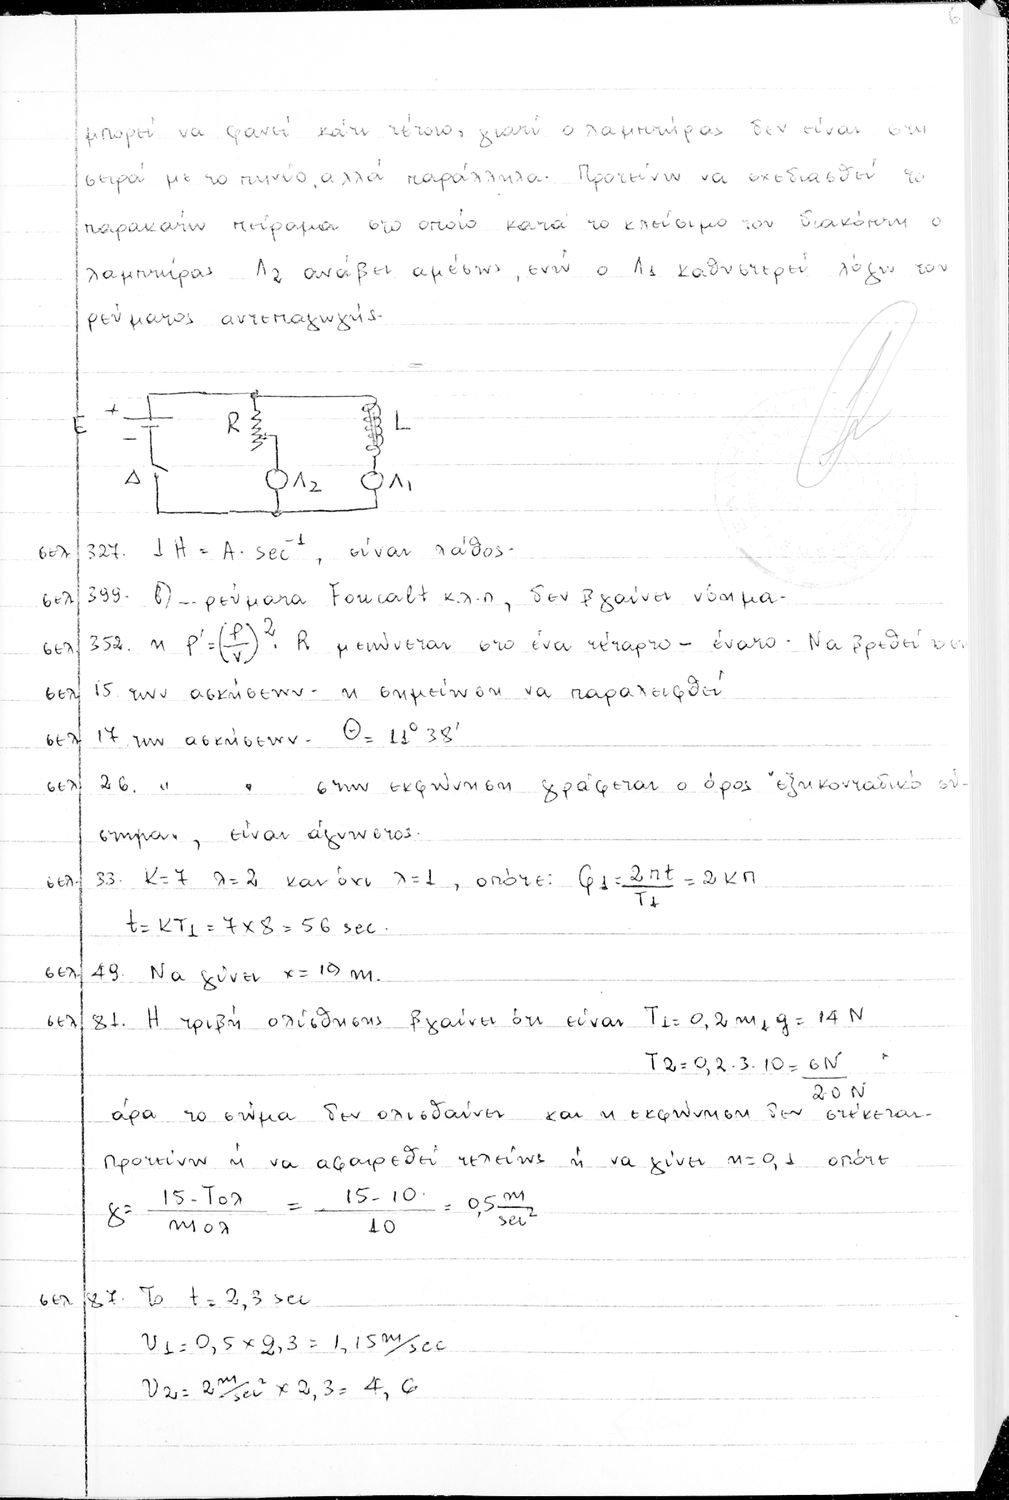 6
μπορεί να φανεί κάτι τέτοιο, γιατί ο λαμπτήρας δεν είναι στη
σειρά με το πηνίο, αλλά παράλληλα. Προτείνω να σχεδιασθεί το
παρακάτω πείραμα στο οποίο κατά το κλείσιμο του διακόπτη ο
λαμπτήρας Λ2 ανάβει αμέσως, ενώ ο Λ1 καθυστερεί λόγω του
ρεύματος αυτεπαγωγής.
E + - Δ R Λ2 L Λ1
σελ 327. 1 H = A. sec⁻¹, είναι λάθος.
σελ 399. β) ... ρεύματα Foucalt κ.λ.π, δεν βγαίνει νόημα.
σελ 352. η ρ'=(ρ/ν)². R μειώνεται στο ένα τέταρτο - ένατο. Να βρεθεί
σελ 15 των ασκήσεων. η σημείωση να παραλειφθεί
σελ 17 των ασκήσεων. Θ= 11° 38'
σελ 26. " " στην εκφώνηση γράφεται ο όρος "εξηκονταδικό σύ-
στημα", είναι άγνωστος.
σελ 33. K=7 λ=2 και όχι λ=1, οπότε: φ1 = 2πt/T1 = 2Kπ
t= KT1 = 7x8 = 56 sec.
σελ 49. Να γίνει x= 10 m.
σελ 81. Η τριβή ολίσθησης βγαίνει ότι είναι T1= 0,2 m1 g= 14 N
T2=0,2.3.10= 6N
20 N
άρα το σώμα δεν ολισθαίνει και η εκφώνηση δεν στέκεται.
Προτείνω ή να αφαιρεθεί τελείως ή να γίνει n=0,1 οπότε
γ= 15-Τολ/mολ = 15-10/10 = 0,5 m/sec²
σελ 87. Το t= 2,3 sec
υ1= 0,5 x 2,3 = 1,15 m/sec
υ2= 2 m/sec² x 2,3 = 4,6